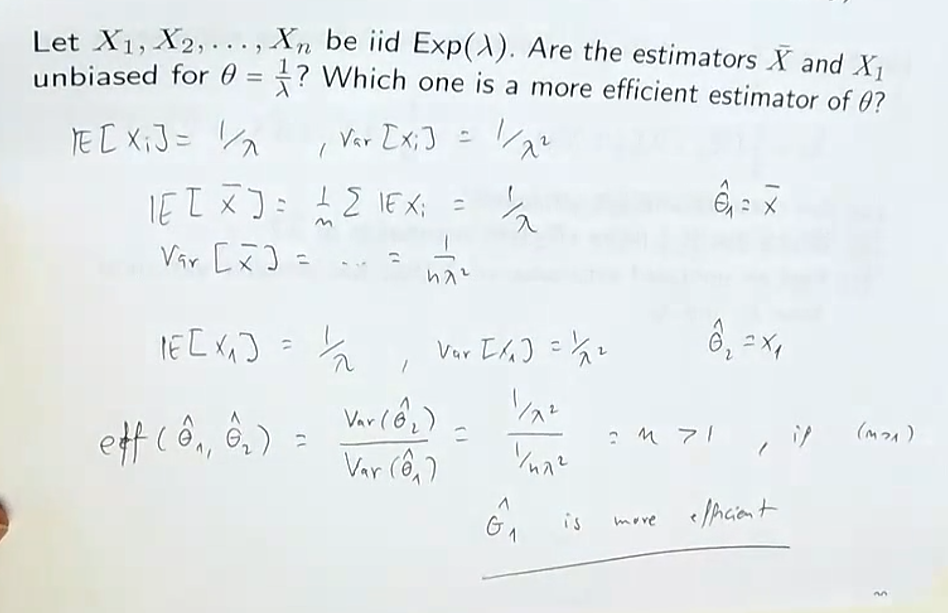 Let X₁, X₂, . . . , Xₙ be iid Exp(λ). Are the estimators X̄ and X₁
unbiased for θ = 1/λ? Which one is a more efficient estimator of θ?
IE[Xᵢ] = 1/λ , Var [Xᵢ] = 1/λ²
IE[X̄] = 1/n Σ IE Xᵢ = 1/λ θ̂₁ = X̄
Var [X̄] = ... = 1/nλ²
IE[X₁] = 1/λ , Var [X₁] = 1/λ² θ̂₂ = X₁
eff (θ̂₁, θ̂₂) = Var(θ̂₂)/Var(θ̂₁) = (1/λ²)/(1/nλ²) = n > 1 , if (n>1)
θ̂₁ is more efficient